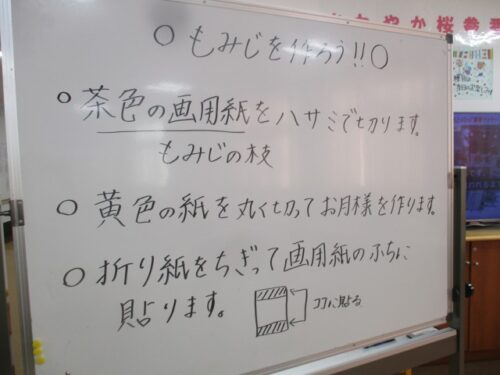 ○ もみじを作ろう!!○
○ 茶色の画用紙をハサミで切ります。
もみじの枝
○ 黄色の紙を丸く切ってお月様を作ります。
○ 折り紙をちぎって画用紙のふちに
貼ります。
ココに貼る